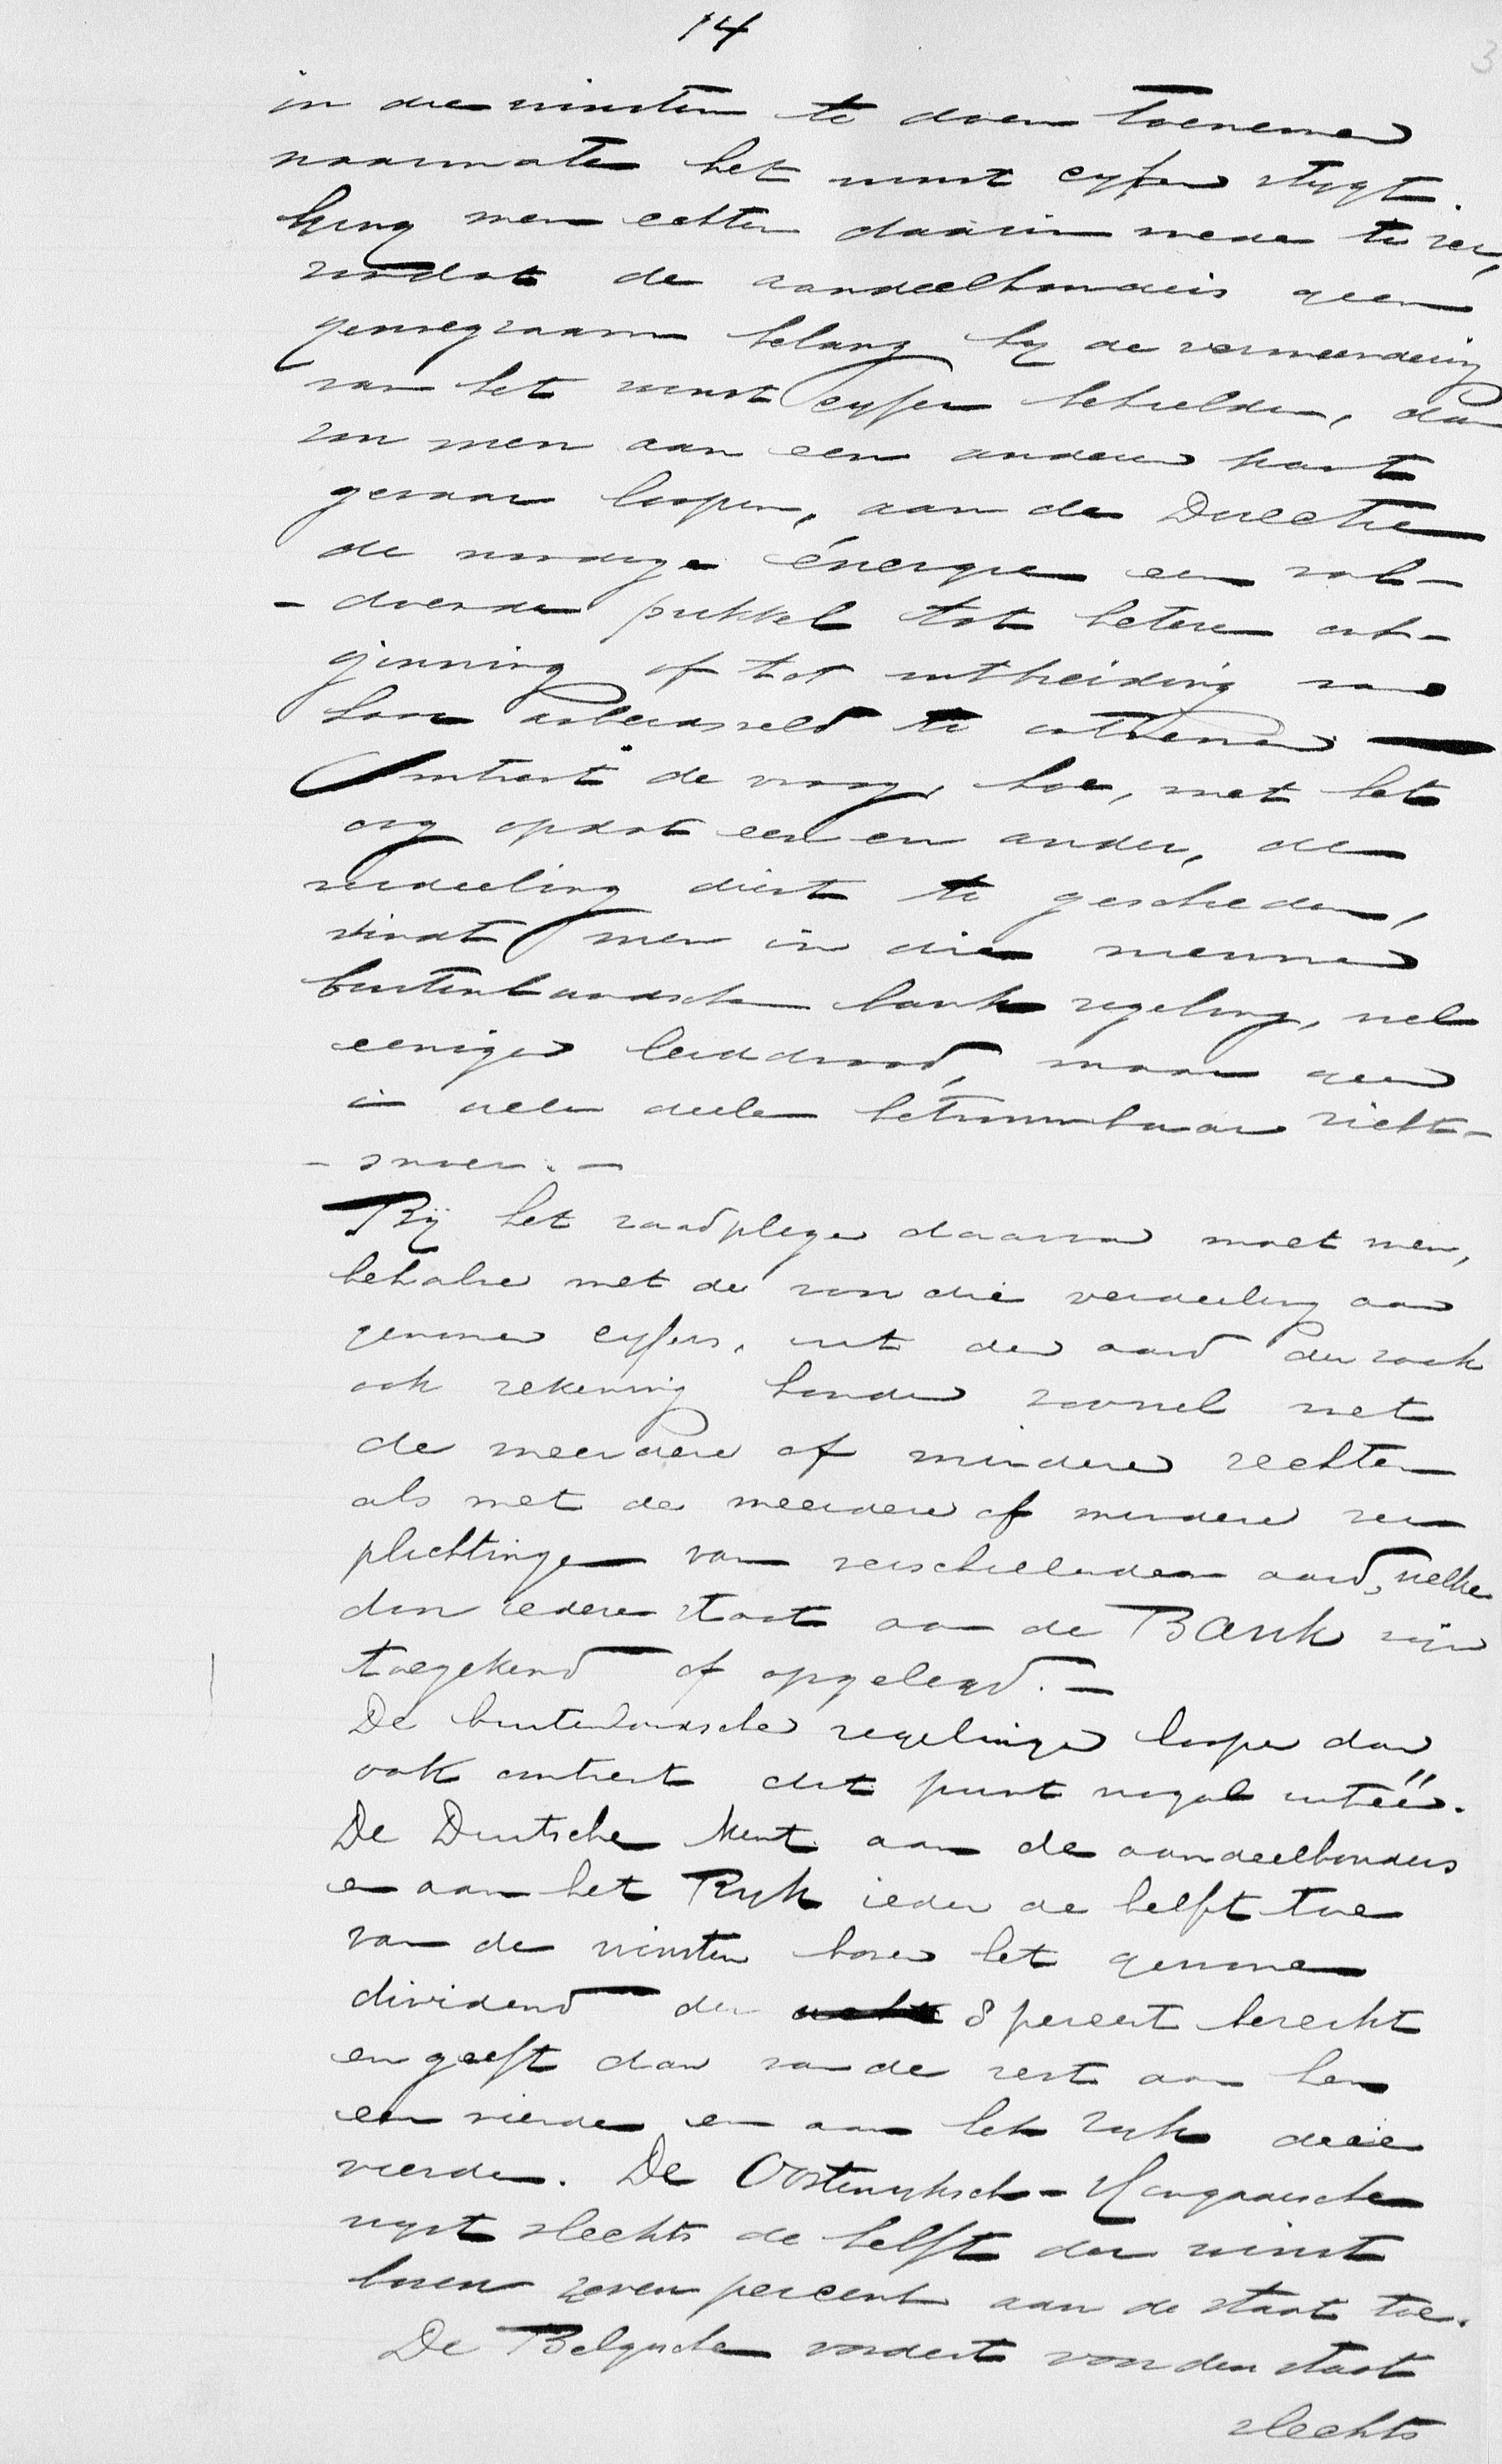 14
3
in die winsten te doen toenemen
naarmate het winst cyfer stygt.
Ging men echter daarin mede te ver,
zoodat de aandeelhouders geen
genoegzaam belang by de vermeerdering
van het winst cyfer behielden, dan
zou men aan een anderen kant
gevaar loopen, aan de Directie
de noodige énergie en vol-
-doenden prikkel tot betere ont-
ginning of tot uitbreiding van
haar arbeidsveld te ontnemen
Omtrent de vraag, hoe, met het
oog op dat een en ander, de
verdeeling dient te geschieden,
vindt men in de nieuwe
buitenlandsche bank regeling, wel
eenigen leiddraad, maar geen
in allen deele betrouwbaar richt-
- snoer. -
Bij het raadplegen daarvan moet men,
behalve met de voor die verdeeling aan
genomen cyfers, uit den aard der zaak
ook rekening houden zoowel met
de meerdere of mindere rechten
als met de meerdere of mindere ver
plichtingen van verschillenden aard, welke
door iedere staat aan de Bank zijn
toegekend of opgelegd. -
De buitenlandsche regelingen loopen dan
ook omtrent dit punt nogal uiteen.
De Duitsche kent aan de aandeelhouders
en aan het Ryk ieder de helft toe
van de winsten boven het gewone
dividend der 8 percent bereikt
en geeft dan van de rest aan hen
een vierde en aan het ryk drie
vierden. De Oostenryksch-Hongaarsche
wyst slechts de helft der winst
boven zeven percent aan de staat toe.
De Belgische vordert voor den staat
slechts